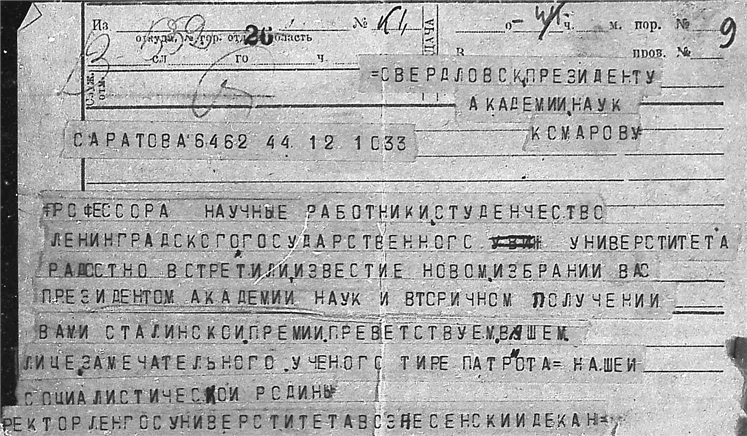 Из № 9
откуда, № гор. отд. область
26
сл го ч
о ч. м. пор. №
В пров. №
=СВЕРДЛОВСК,ПРЕЗИДЕНТУ
АКАДЕМИИ,НАУК
КСМАРОВУ
САРАТОВА 6462 44 12 1033
ПРОФЕССОРА НАУЧНЫЕ РАБОТНИКИ,СТУДЕНЧЕСТВО
ЛЕНИНГРАДСКОГО,ГОСУДАРСТВЕННОГО УНИВЕРСТИТЕТА
РАДОСТНО ВСТРЕТИЛИ,ИЗВЕСТИЕ НОВОМ,ИЗБРАНИИ ВАС
ПРЕЗИДЕНТОМ АКАДЕМИИ НАУК И ВТОРИЧНОМ ПОЛУЧЕНИИ
ВАМИ СТАЛИНСКОЙ,ПРЕМИИ,ПРЕВЕТСТВУЕМ,ВАШЕМ
ЛИЦЕ,ЗАМЕЧАТЕЛЬНОГО .УЧЕНОГО ТИРЕ ПАТРИОТА= НАШЕЙ
СОЦИАЛИСТИЧЕСКОЙ РОДИНЫ
РЕКТОР ЛЕНГОСУНИВЕРСТИТЕТА ВОЗНЕСЕНСКИЙ ДЕКАН=